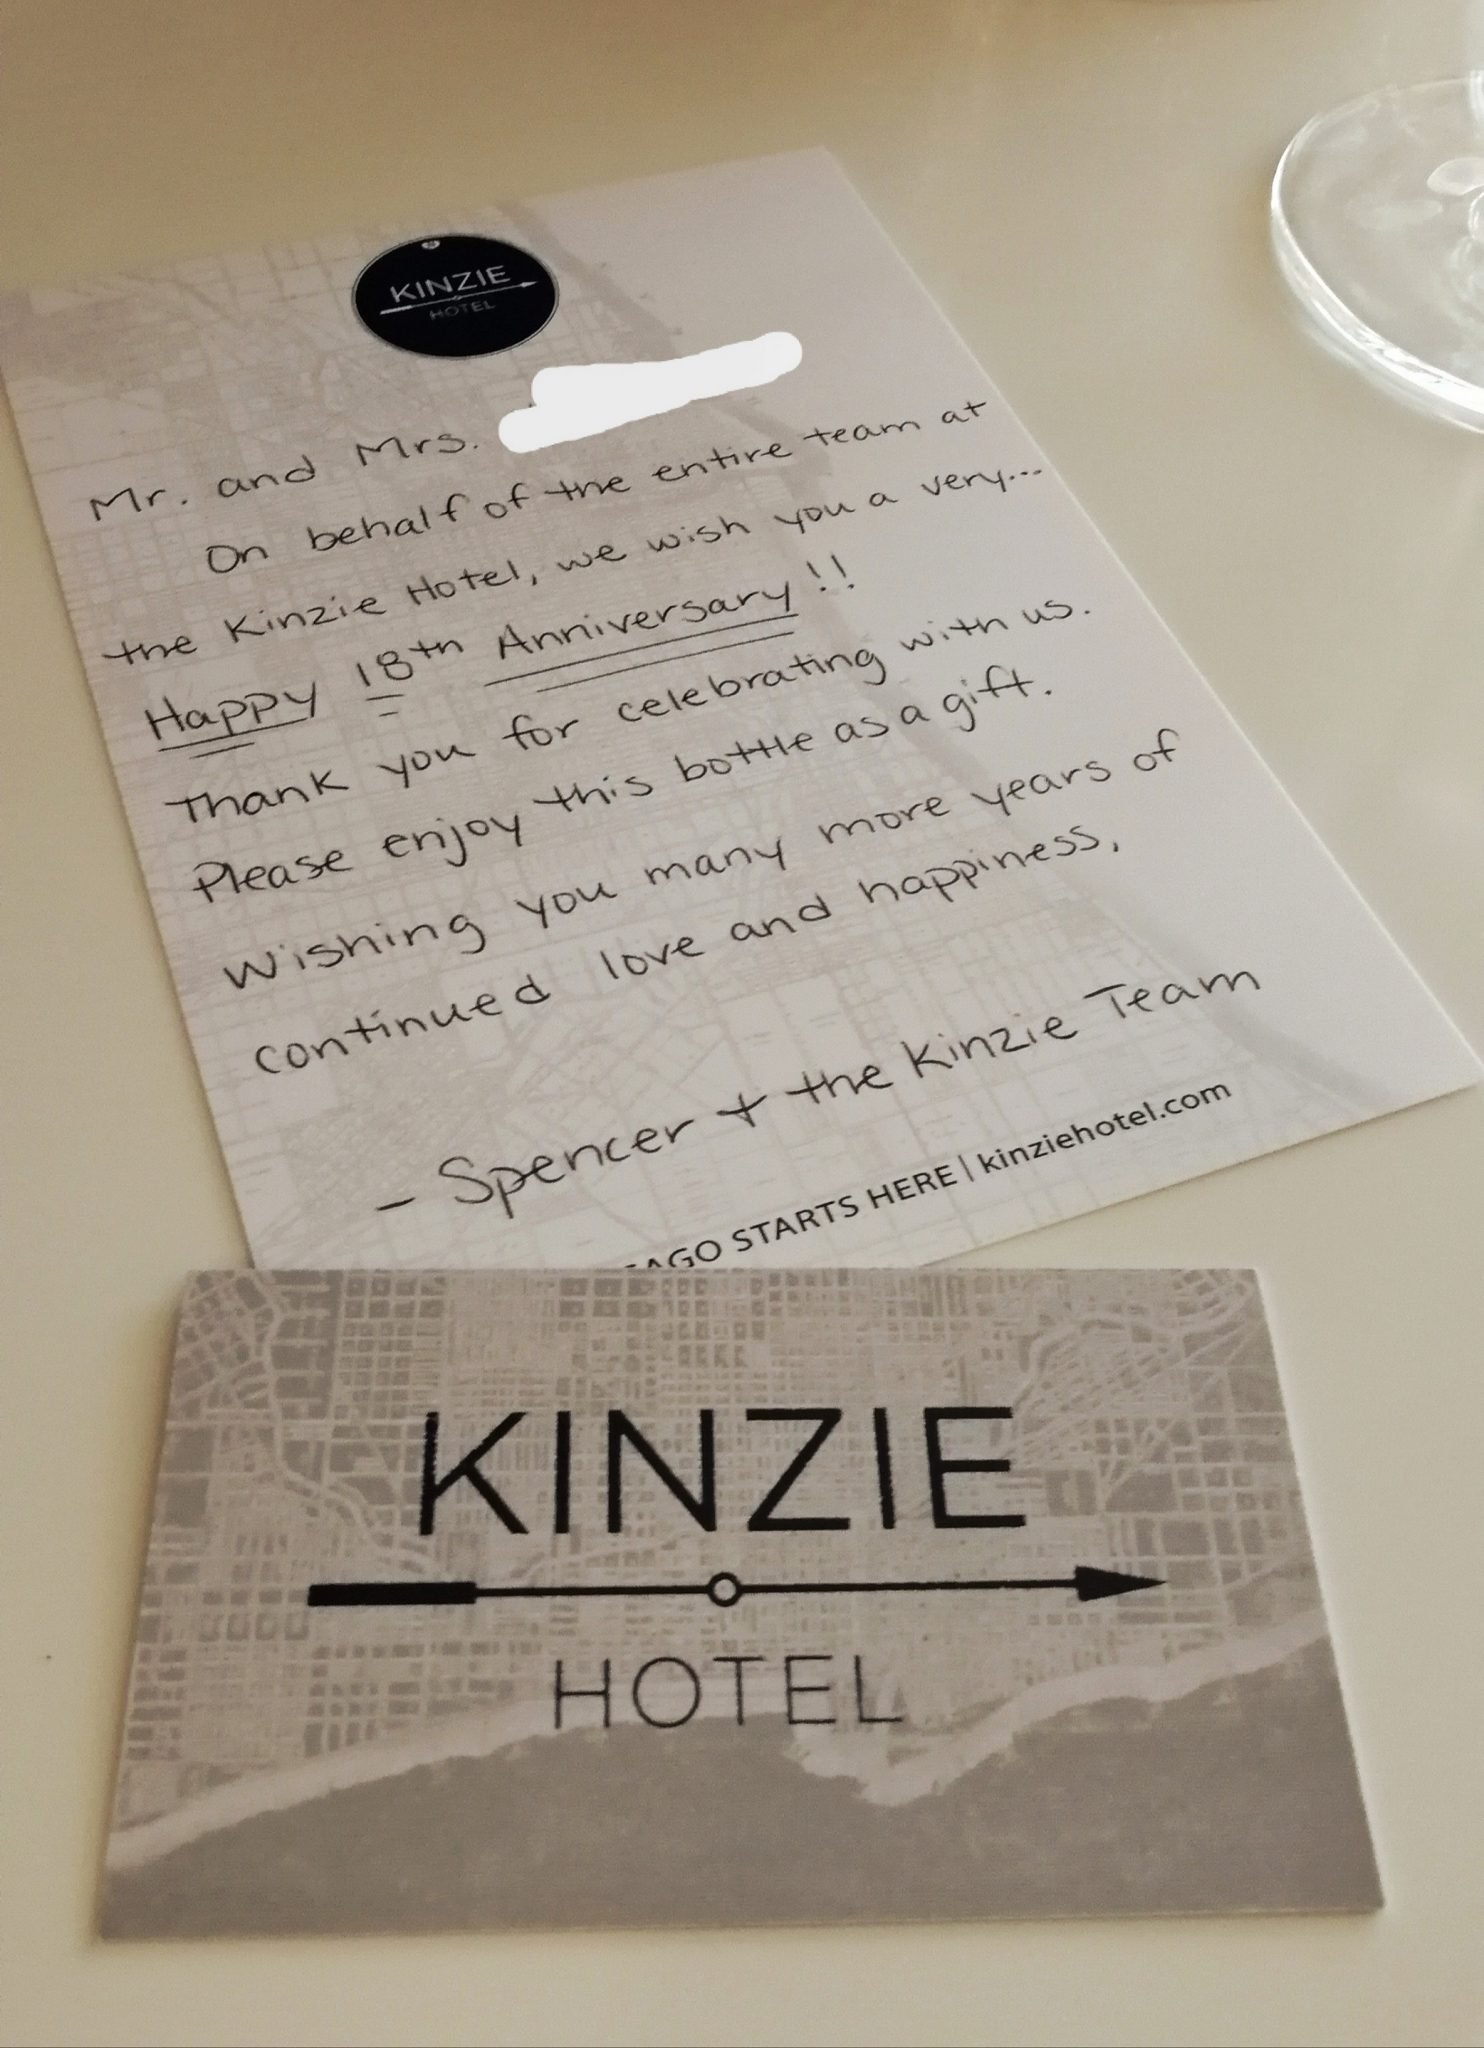 KINZIE
HOTEL
Mr. and Mrs.
On behalf of the entire team at
the Kinzie Hotel, we wish you a very...
Happy 18th Anniversary!!
Thank you for celebrating with us.
Please enjoy this bottle as a gift.
Wishing you many more years of
continued love and happiness,
- Spencer + the Kinzie Team
AGO STARTS HERE | kinziehotel.com
KINZIE
HOTEL